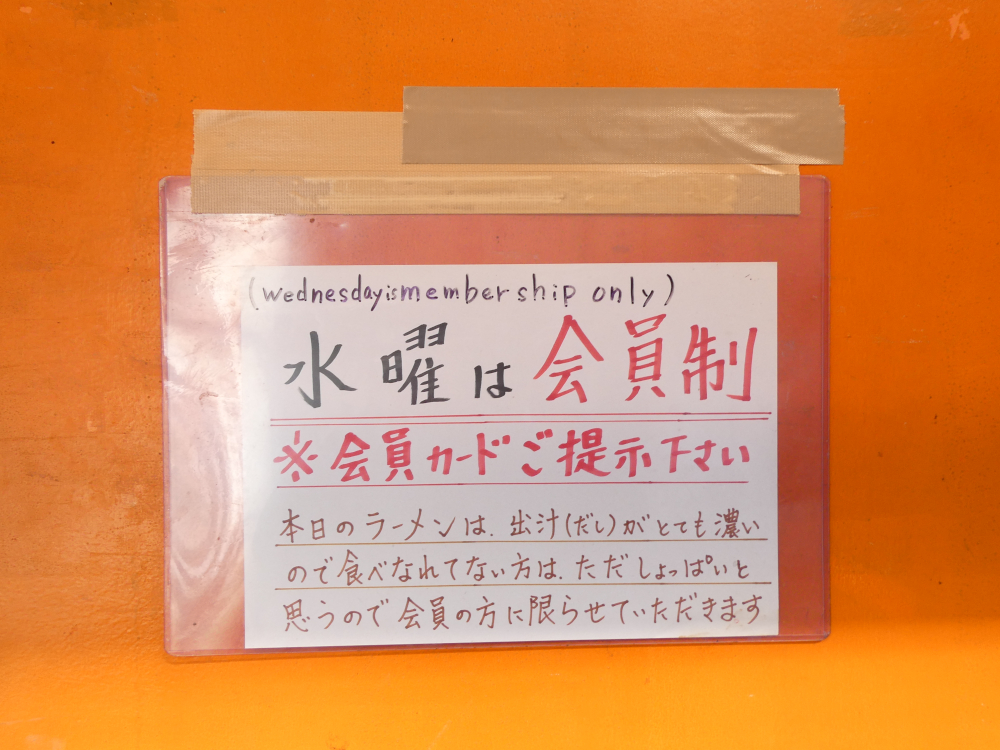 (wednesday is membership only)
水曜は会員制
※会員カードご提示下さい
本日のラーメンは、出汁(だし)がとても濃い
ので食べなれてない方は、ただしょっぱいと
思うので会員の方に限らせていただきます